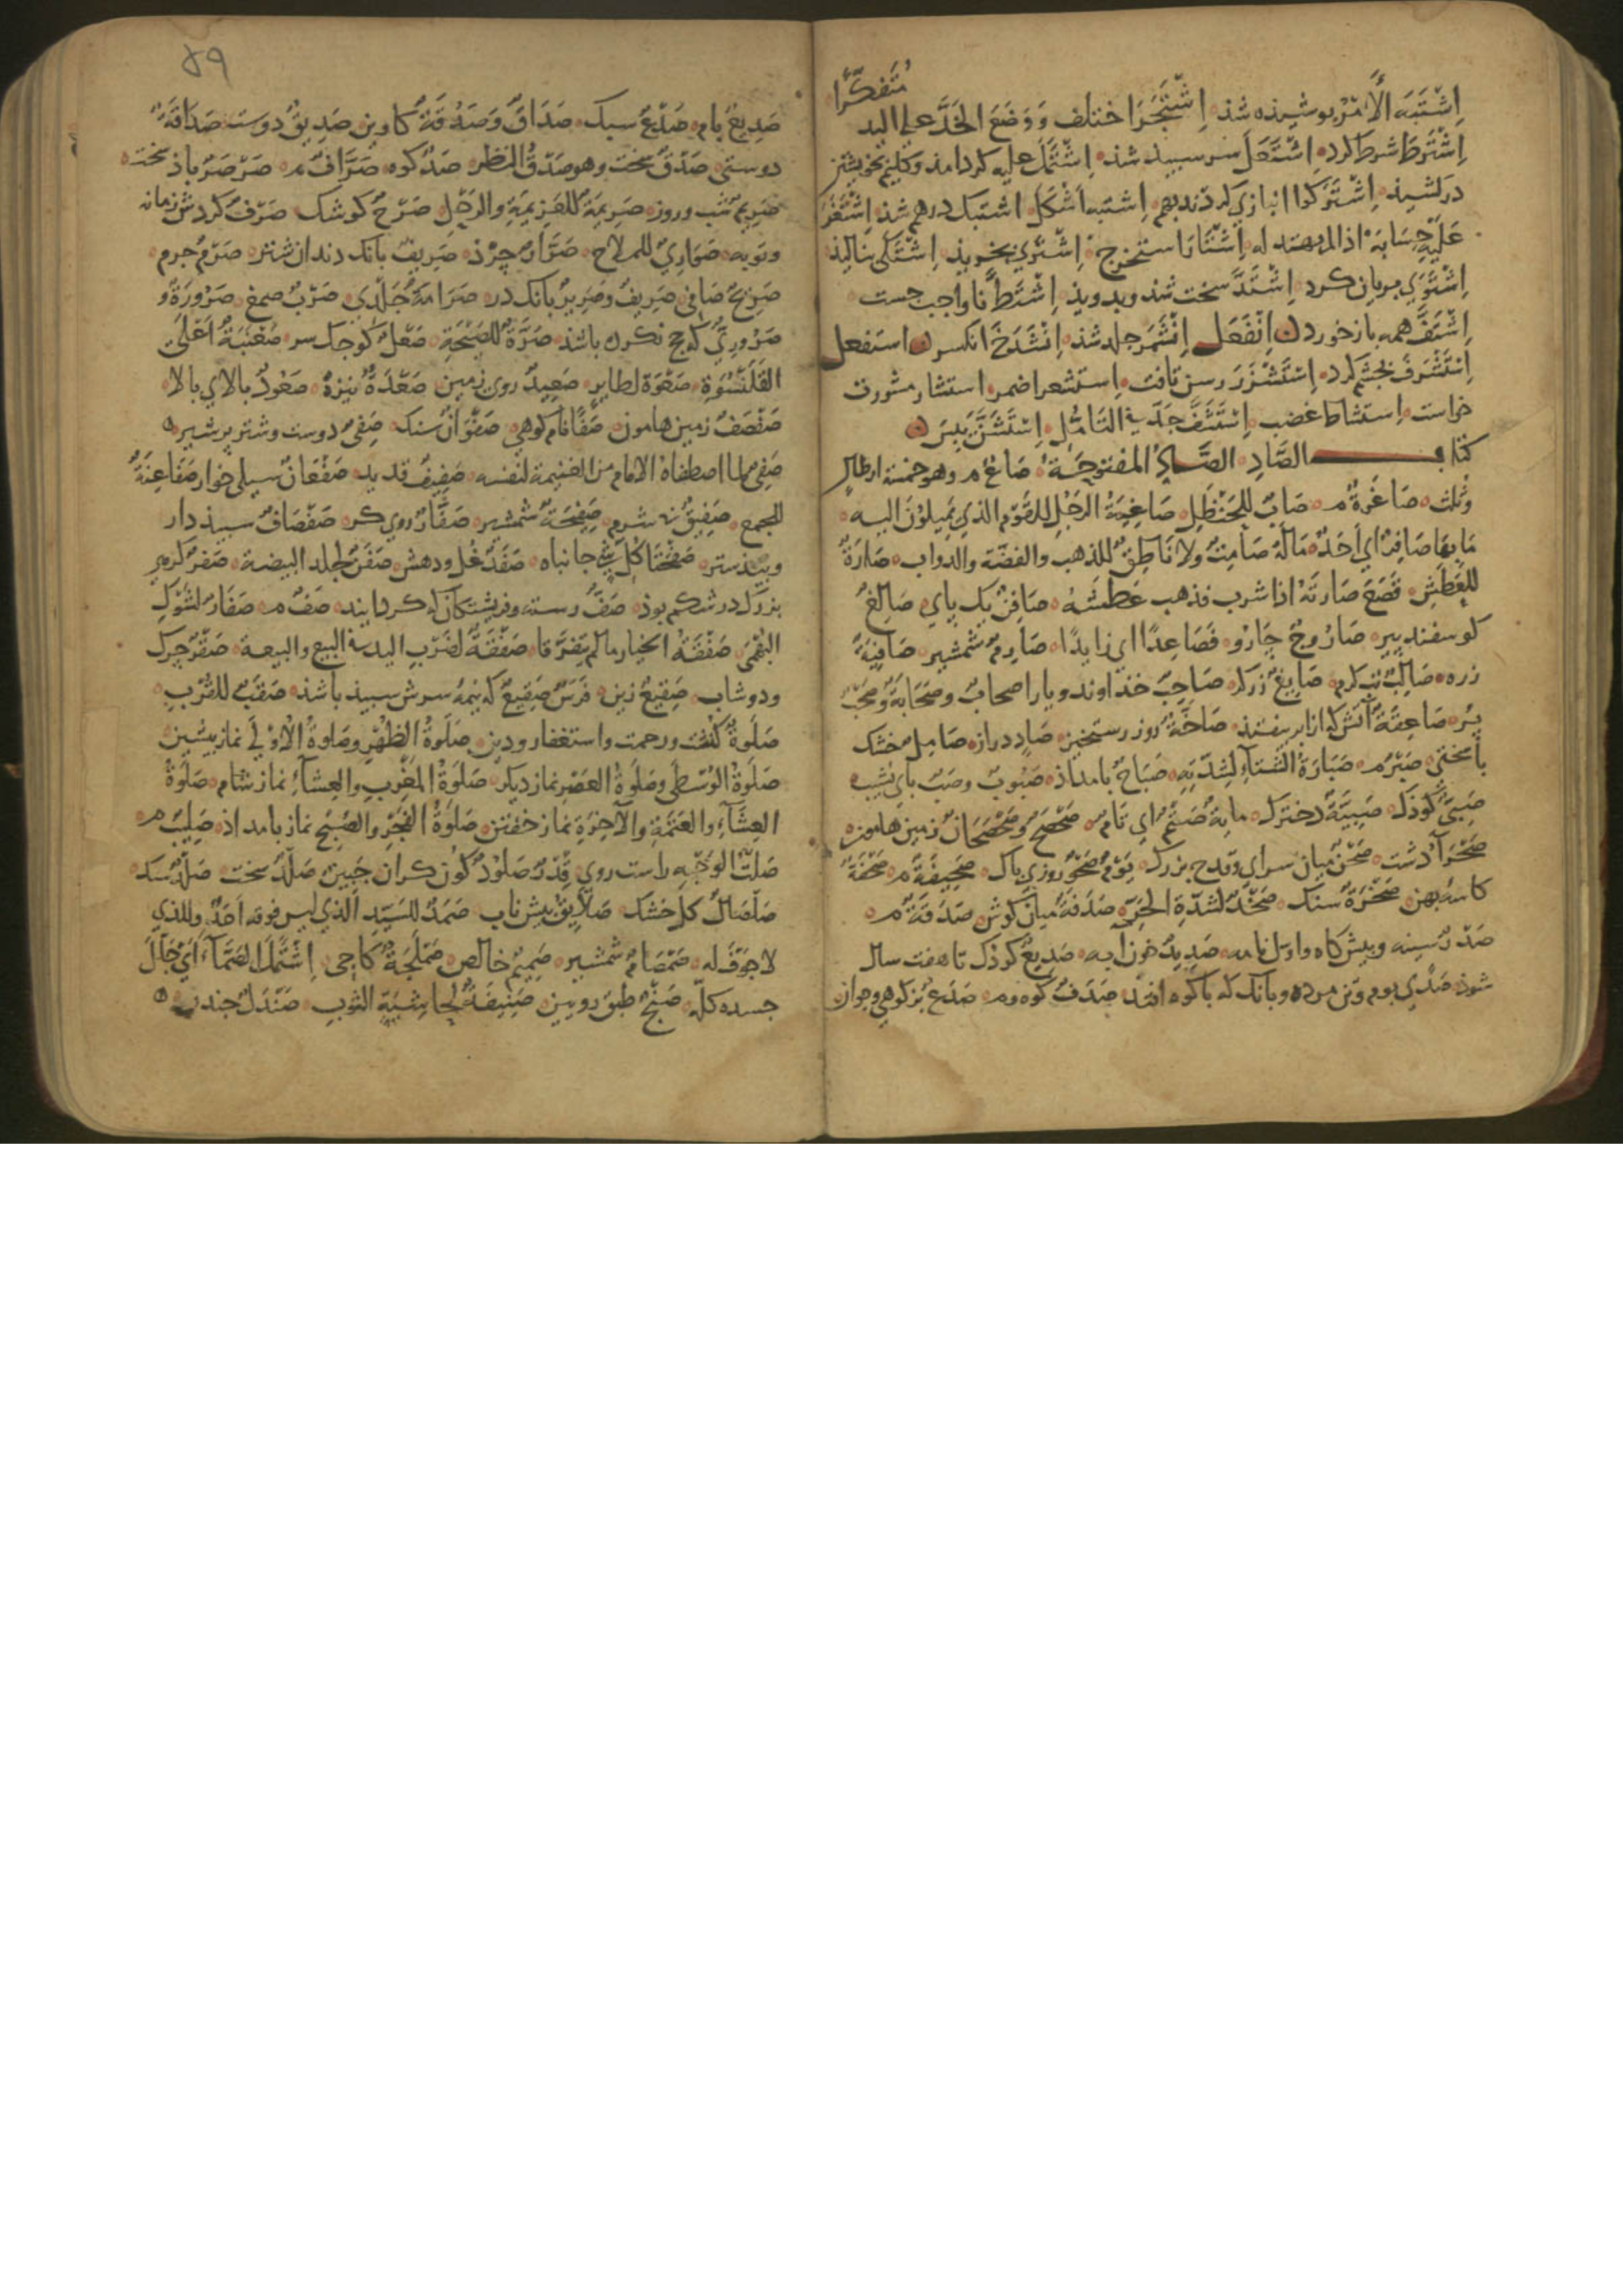 متفكرا
اِشْتَبَهَ الْأَمْرُ بوشيذه شذ اِشْتَجَرَ اختلف وَوَضَعَ الخَدَّ على اليد
اِشْتَرَطَ شرط كرد اِشْتَعَلَ سر سبيد شذ اِشْتَمَلَ عليه كرد امذ وكليم بخويشتن
دركشيذ اِشْتَرَكُوا انبازي كردند بهم اشتبه اشكل اشتبك درهم شذ اِشْتَغَرَ
عَلَيْهِ حِسَابَهُ اذا لم يهتد له اِشْتَارَ استخرج اِشْتَرَي بخريذ اِشْتَكَى بناليذ
اِشْتَوَي بريان كرد اِشْتَدَّ سخت شذ وبدويذ اِشْتَطَّ ناواجب جست
اِشْتَفَّ همه بازخورد اِنْفَعَل اِنْشَمَرَ جلد شذ اِنْشَدَخَ انكسر استفعل
اِسْتَشْرَفَ بجشم كرد اِسْتَشْزَرَ رسن تافت اِستشعر اضمر استشار مشورت
خواست اِستشاط غضب اِسْتَشَفَّ جَدَّ في التأمل اِسْتَشَنَّ يبس
كتاب الصَّادِ الصَّادُ المفتوحَة صَاعٌ م وهو خمسة ارطال
وثلث صَاغِرَةٌ م صَابٌ للحَنْظَلِ صَاغِيَةُ الرَجُلِ للقَوْمِ الذي يَمِيلُوْنَ اليه
مَا بِهَا صَافِرٌ اي اَحَدٌ مَالَهُ صَامِتٌ ولا نَاطِقٌ للذهب والفضة والدواب صَارَةٌ
للعَطَشِ قَصَعَ صَارَتَهُ اذا شرب فذهب عَطَشُهُ صَافِنٌ يك پاي صَالِغٌ
كوسفند پير صَارُوجٌ چارو فَصَاعِدًا اي زايدًا صَارِمٌ شمشير صَافِيَةٌ
زره صَالِبٌ تب كرم صَايِغٌ زركر صَاحِبٌ خذاوند ويار اصحابٌ وصَحَابَةٌ وصَحْبٌ
پر صَاعِقَةٌ آتش كه از ابر بيفتد صَاخَّةٌ روز رستخيز صَادٍ دراز صَامِلٌ خشك
بامختي صَبْرٌ م صَبَارَةُ الشِّتَاءِ لِشِدَّتِهِ صَبَاحٌ بامداذ صَبُوبٌ وصَبَبٌ باي نشيب
صَبِيٌّ كوذك صَبِيَّةٌ دخترك مايةٌ صَتْمٌ اي تام صَحْصَحٌ وصَحْصَحَانٌ زمين هامون
صَحْرَآءُ دشت صَحْنٌ ميان سراي وقدح بزرك يَوْمٌ صَحْوٌ روزي پاك صَحِيفَةٌ م صَحْفَةٌ
كاسه پهن صَخْرَةٌ سنك صَخْدٌ لشدّة الحَرِّ صَدَفَةٌ ميان كوش صَدَقَةٌ م
صَدْرٌ سينه وپيش كاه واول نامه صَدِيدٌ خون آبه صَدِيعٌ كوذك تا هفت سال
شوذ صَدْيٌ بوم وتن مرده وبانك كه باكوه افتد صَدَفٌ كوه وم صَدَعٌ بز كوهي وجوان
صَدِيعٌ بام صَدْعٌ سبك صَدَاقٌ وَصَدُقَةٌ كاوين صَدِيقٌ دوست صَدَاقَةٌ
دوستي صَدْقٌ سخت وهو صَدْقُ النظر صَدٌّ كوه صَرَّافٌ م صَرْصَرٌ باذ سخت
صَرِيمٌ شب وروز صَرِيمَةٌ للعَزِيمَةِ والرَمْلِ صَرْحٌ كوشك صَرْفٌ كردش زمانه
وتوبه صَوَارِيٌ للملاح صَرَّارٌ چِزْد صَرِيفٌ بانك دندان شتر صَرْمٌ چرم
صَرِيحٌ صَافي صَرِيفٌ وصَرِيرٌ بانك در صَرَامَةٌ جَلْدي صَرْبٌ صمغ صَرُورَةٌ و
صَرُورِيٌّ كه حج نكرده باشذ صَرَّةٌ للصَيْحَةِ صَعْلٌ كوجك سر صَعْنَبَةٌ اَعْلىَ
القَلَنْسُوَةِ صَعْوَة لطاير صَعِيدٌ روي زمين صَعْدَةٌ نيزه صَعُودٌ بالاي بالا
صَفْصَفٌ زمين هامون صَفًا نام كوهي صَفْوَانٌ سنك صَفِيٌ دوست وشتر پر شير
صَفِيٌّ لما اصطفاه الامام من الغنيمة لنفسه صَفِيفٌ قديد صَفْعَانٌ سيلي خوار صَفَاعِنَةٌ
للجمع صَفِيقٌ بي شرم صَفِيحَةٌ شمشير صَفَّارٌ روي كر صَفْصَافٌ سبيذ دار
وبيدستر صَفْحَتَا كُلِّ شَيْءٍ جانباه صَفَدٌ غل ودهش صَفَنٌ لجلد البيضة صَفَرٌ كرم
بزرك در شكم بوذ صَفٌّ رسته وفريشتكان كه كرد ايند صَفٌ م صَفَارٌ لشَوْكِ
البُهْمَى صَفْقَةُ الخيار ما لم يَتَفَرَّقَا صَفْقَةٌ لضَرْبِ اليد في البيع والبيعة صَقْرٌ چرك
ودوشاب صَقِيعٌ زين فَرَسٌ صَقِيعٌ كه نيمه سرش سبيذ باشذ صَقَبٌ للقُرْبِ
صَلَوةٌ كُنُشت ورحمت واستغفار ودين صَلَوةُ الظُهْرِ وصَلَوةُ الْاُوْلَي نماز پيشين
صَلَوةُ الوُسْطَى وصَلَوةُ العَصْرِ نماز ديكر صَلَوَةُ المَغْرِبِ والعِشَآءِ نماز شام صَلَوةُ
العِشَآءِ والعَتَمَةِ والآخِرَةِ نماز خفتن صَلَوةُ الفَجْرِ والصُبْحِ نماز بامداذ صَلِيبٌ م
صَلْتُ الوَجْهِ راست روي قِدْرٌ صَلُوْدٌ كون كران جَبِينٌ صَلْدٌ سخت صَلْدٌ سنك
صَلْصَالٌ كل خشك صَلَايِقُ پيش ناب صَمَدٌ للسَيِّدِ الذي ليس فوقه احَدٌ وللذي
لا جَوْفَ له صَمْصَامٌ شمشير صَمِيمٌ خالص صَمْلَجَةٌ كاجي اِشْتَمَلَ الصَمَّآءَ اَي جَلَّلَ
جسده كلّه صَنْجٌ طبق رويين صَنِيفَةٌ لحاشِيَةِ الثوبِ صَنْدَلٌ چندن